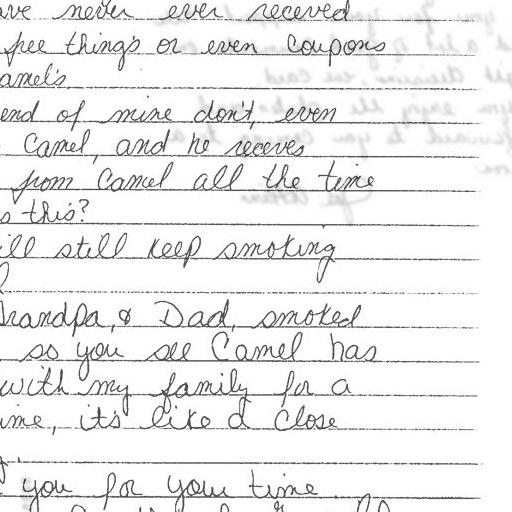 ave never ever receved
free things or even coupons
amel's
end of mine don't, even
Camel, and he receves
from Camel all the time
s this?
ill still keep smoking
randpa, & Dad, smoked
so you see Camel has
with my family for a
ime, it's like a close
you for your time